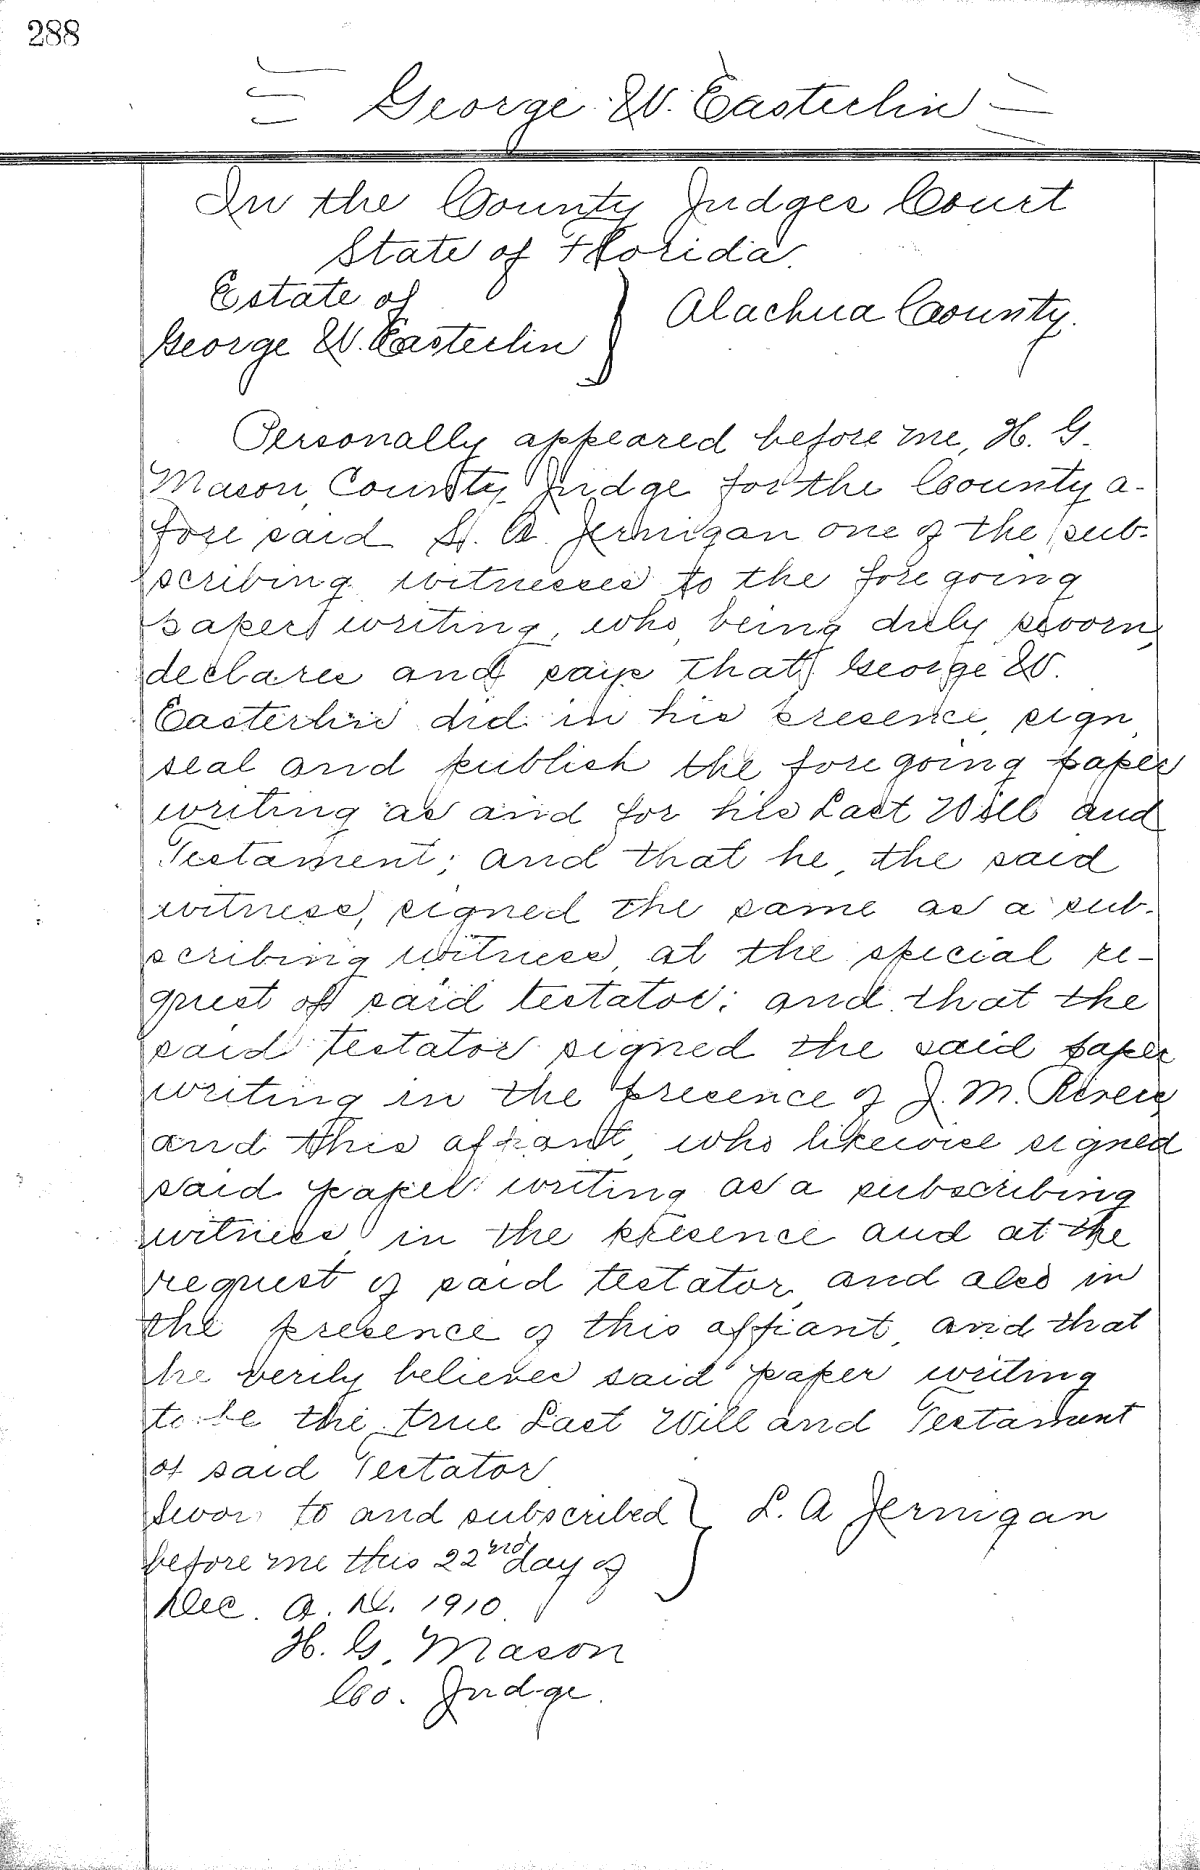 288
George W. Easterlin
In the County Judges Court
State of Florida.
Estate of
George W. Easterlin
Alachua County.
Personally appeared before me, H. G.
Mason, County Judge for the County a-
fore said L. A. Jernigan one of the sub-
scribing witnesses to the foregoing
paper writing, who, being duly sworn,
declares and says that George W.
Easterlin did in his presence, sign,
seal and publish the foregoing paper
writing as and for his Last Will and
Testament; and that he, the said
witness, signed the same as a sub-
scribing witness, at the special re-
quest of said testator; and that the
said testator signed the said paper
writing in the presence of J. M. Rivers
and this affiant, who likewise signed
said paper writing as a subscribing
witness, in the presence and at the
request of said testator, and also in
the presence of this affiant, and that
he verily believes said paper writing
to be the true Last Will and Testament
of said Testator
Sworn to and subscribed
before me this 22nd day of
Dec. A. D. 1910
L. A Jernigan
H. G. Mason
Co. Judge.